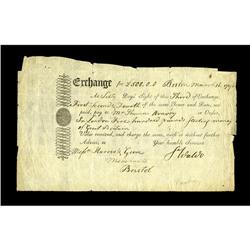 Exchange for £500.0.0 Boston March
At Sixty Days Sight of this Third of Exchange
First, Second & Fourth of the same Tenor and Date, not
paid, pay to Mr. Thomas or Order,
In London Five hundred pounds Sterling money
of Great Britain
Value received, and charge the same, with or without further
Advice, to Your humble Servant
Messrs. Harris &
Merchants
Bristol